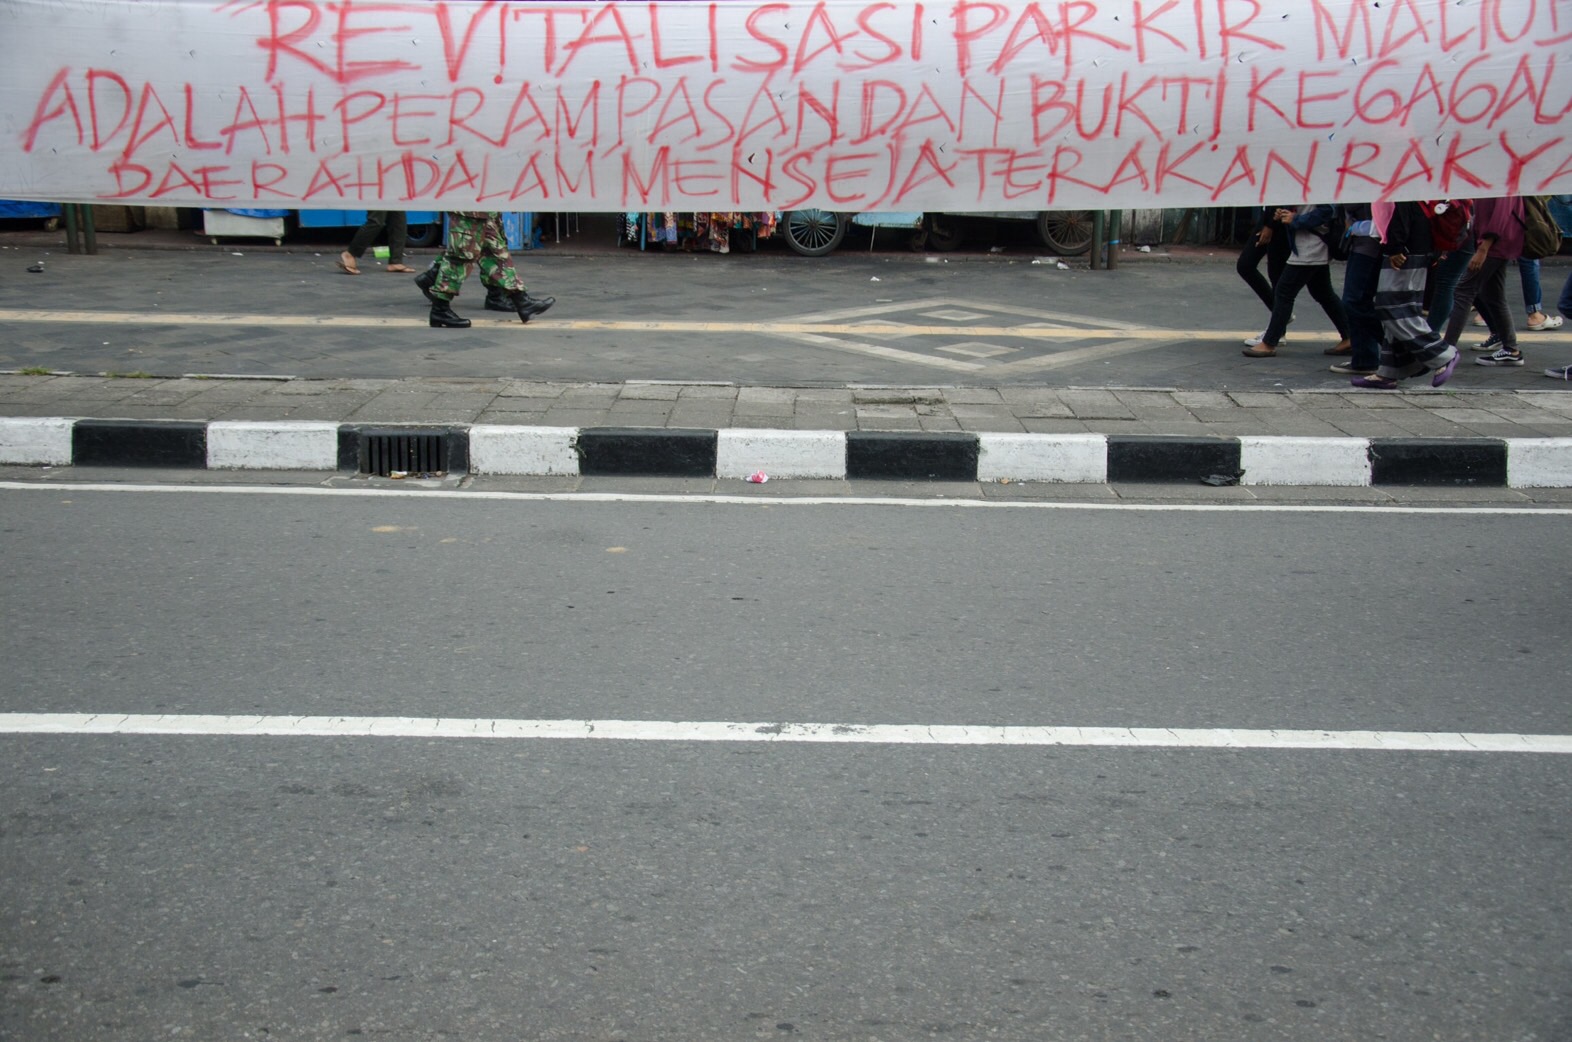 REVITALISASI PARKIR MALIOB
ADALAH PERAMPASAN DAN BUKTI KEGAGALA
DAERAH DALAM MENSEJATERAKAN RAKYA